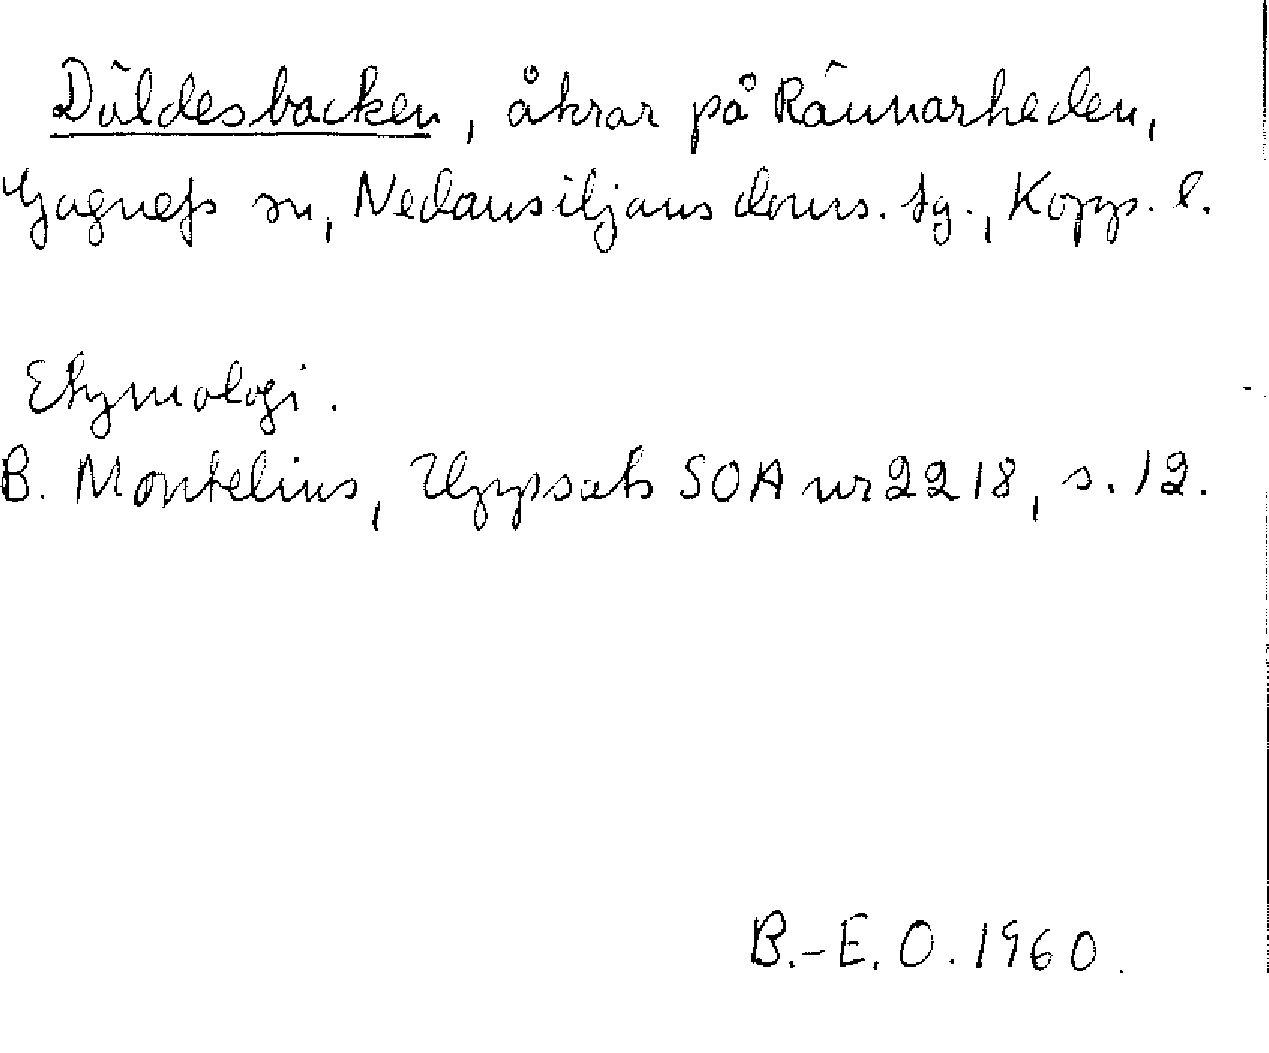 Däldesbacken, åkrar på Rännarheden,
Gagnefs sn, Nedansiljans doms. tg., Kopp. l.
Etymologi.
B. Montelius, Uppsats SOA nr 2218, s. 12.
B.-E. O. 1960.